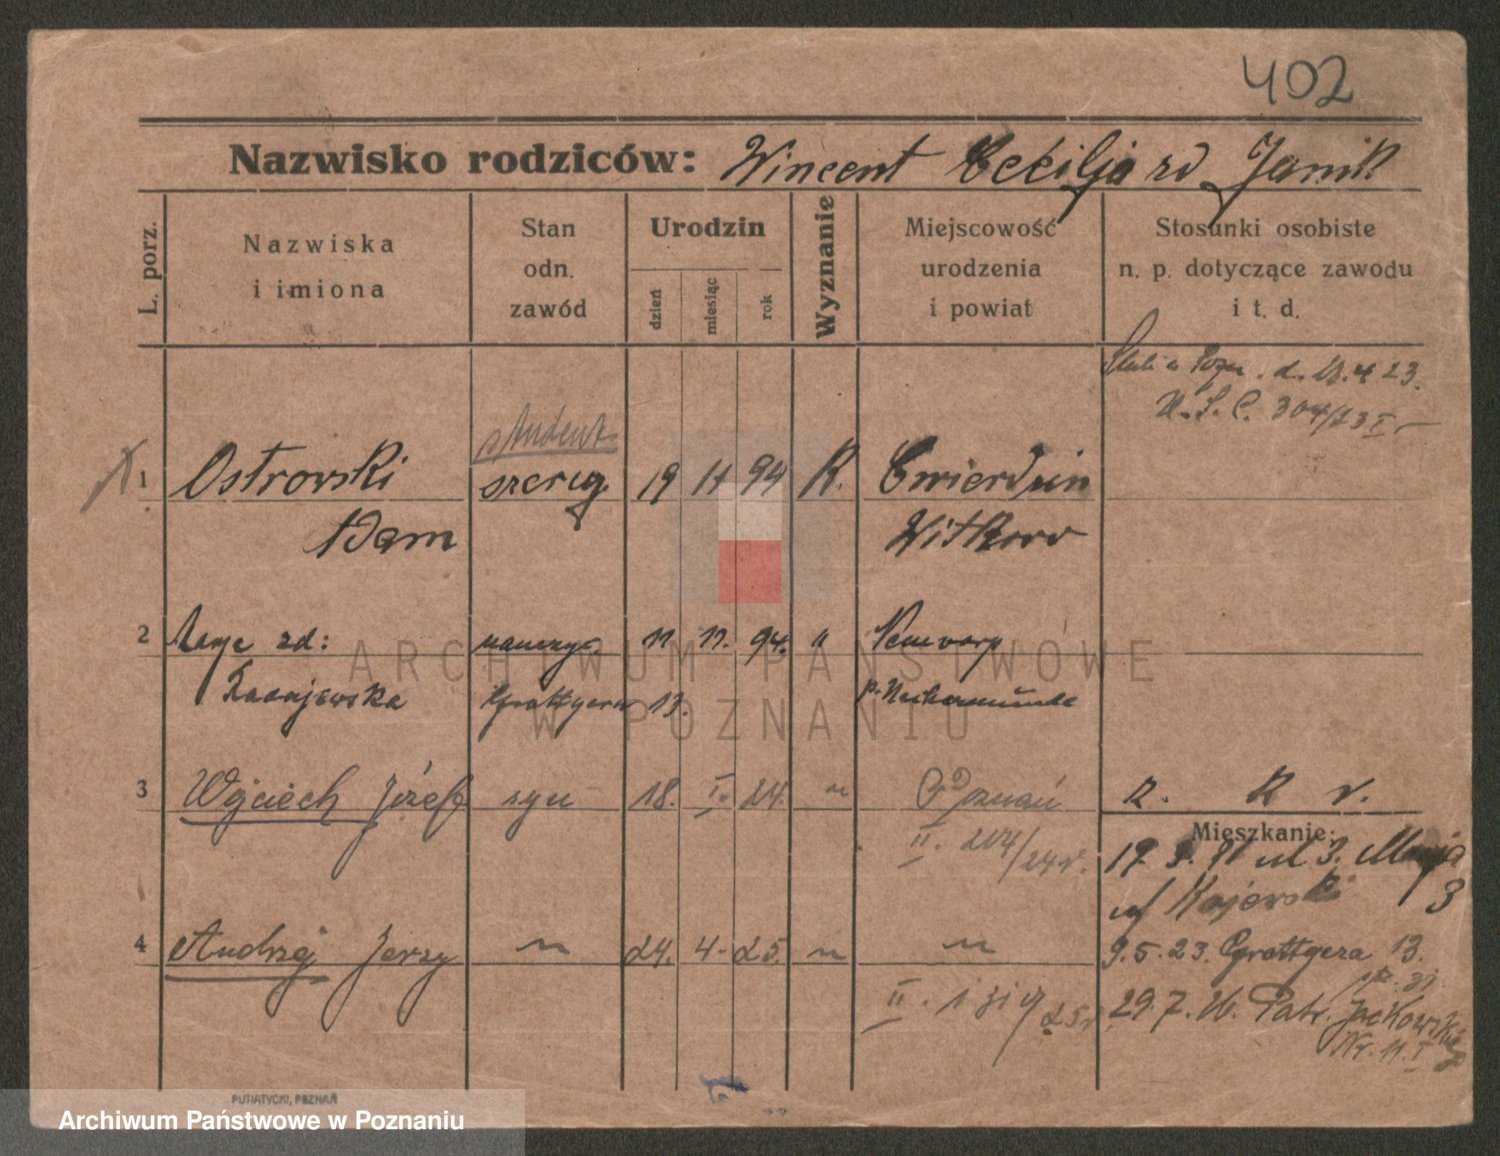 402
Nazwisko rodziców: Wincent Cecilja zd Janik
L. porz.
Nazwiska
i imiona
Stan
odn.
zawód
Urodzin
dzień
miesiąc
rok
Wyznanie
Miejscowość
urodzenia
i powiat
Stosunki osobiste
n. p. dotyczące zawodu
i t. d.
Pozn. d. 18.4 23.
U.S.C. 304/23 I
student
1 Ostrowski szereg. 19 11 94 R. Cwierdzin
Adam Witkowo
2 zd: nauczyc. 11. 11. 94. "
Grottgera 13.
3 Wojciech Józef syn 18. I. 24. " Poznań z. K r.
II. 214/24 r.
Mieszkanie:
17. 3. 21 ul 3. Maja 3
Kajewski
4 Andrzej Jerzy " 24. 4. 25. " " 9.5.23. Grottgera 13.
II. 25 r 29.7.26. Patr. Jackowskiego
Nr. 11. I
PUTIATYCKI, POZNAŃ
ARCHIWUM PAŃSTWOWE
W POZNANIU
Archiwum Państwowe w Poznaniu